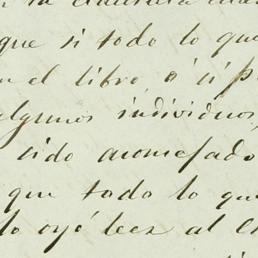 la
que si todo lo que
en el libro, ó si p
algunos individuos,
sido aconsejado
que todo lo qu
lo oyó leer al C